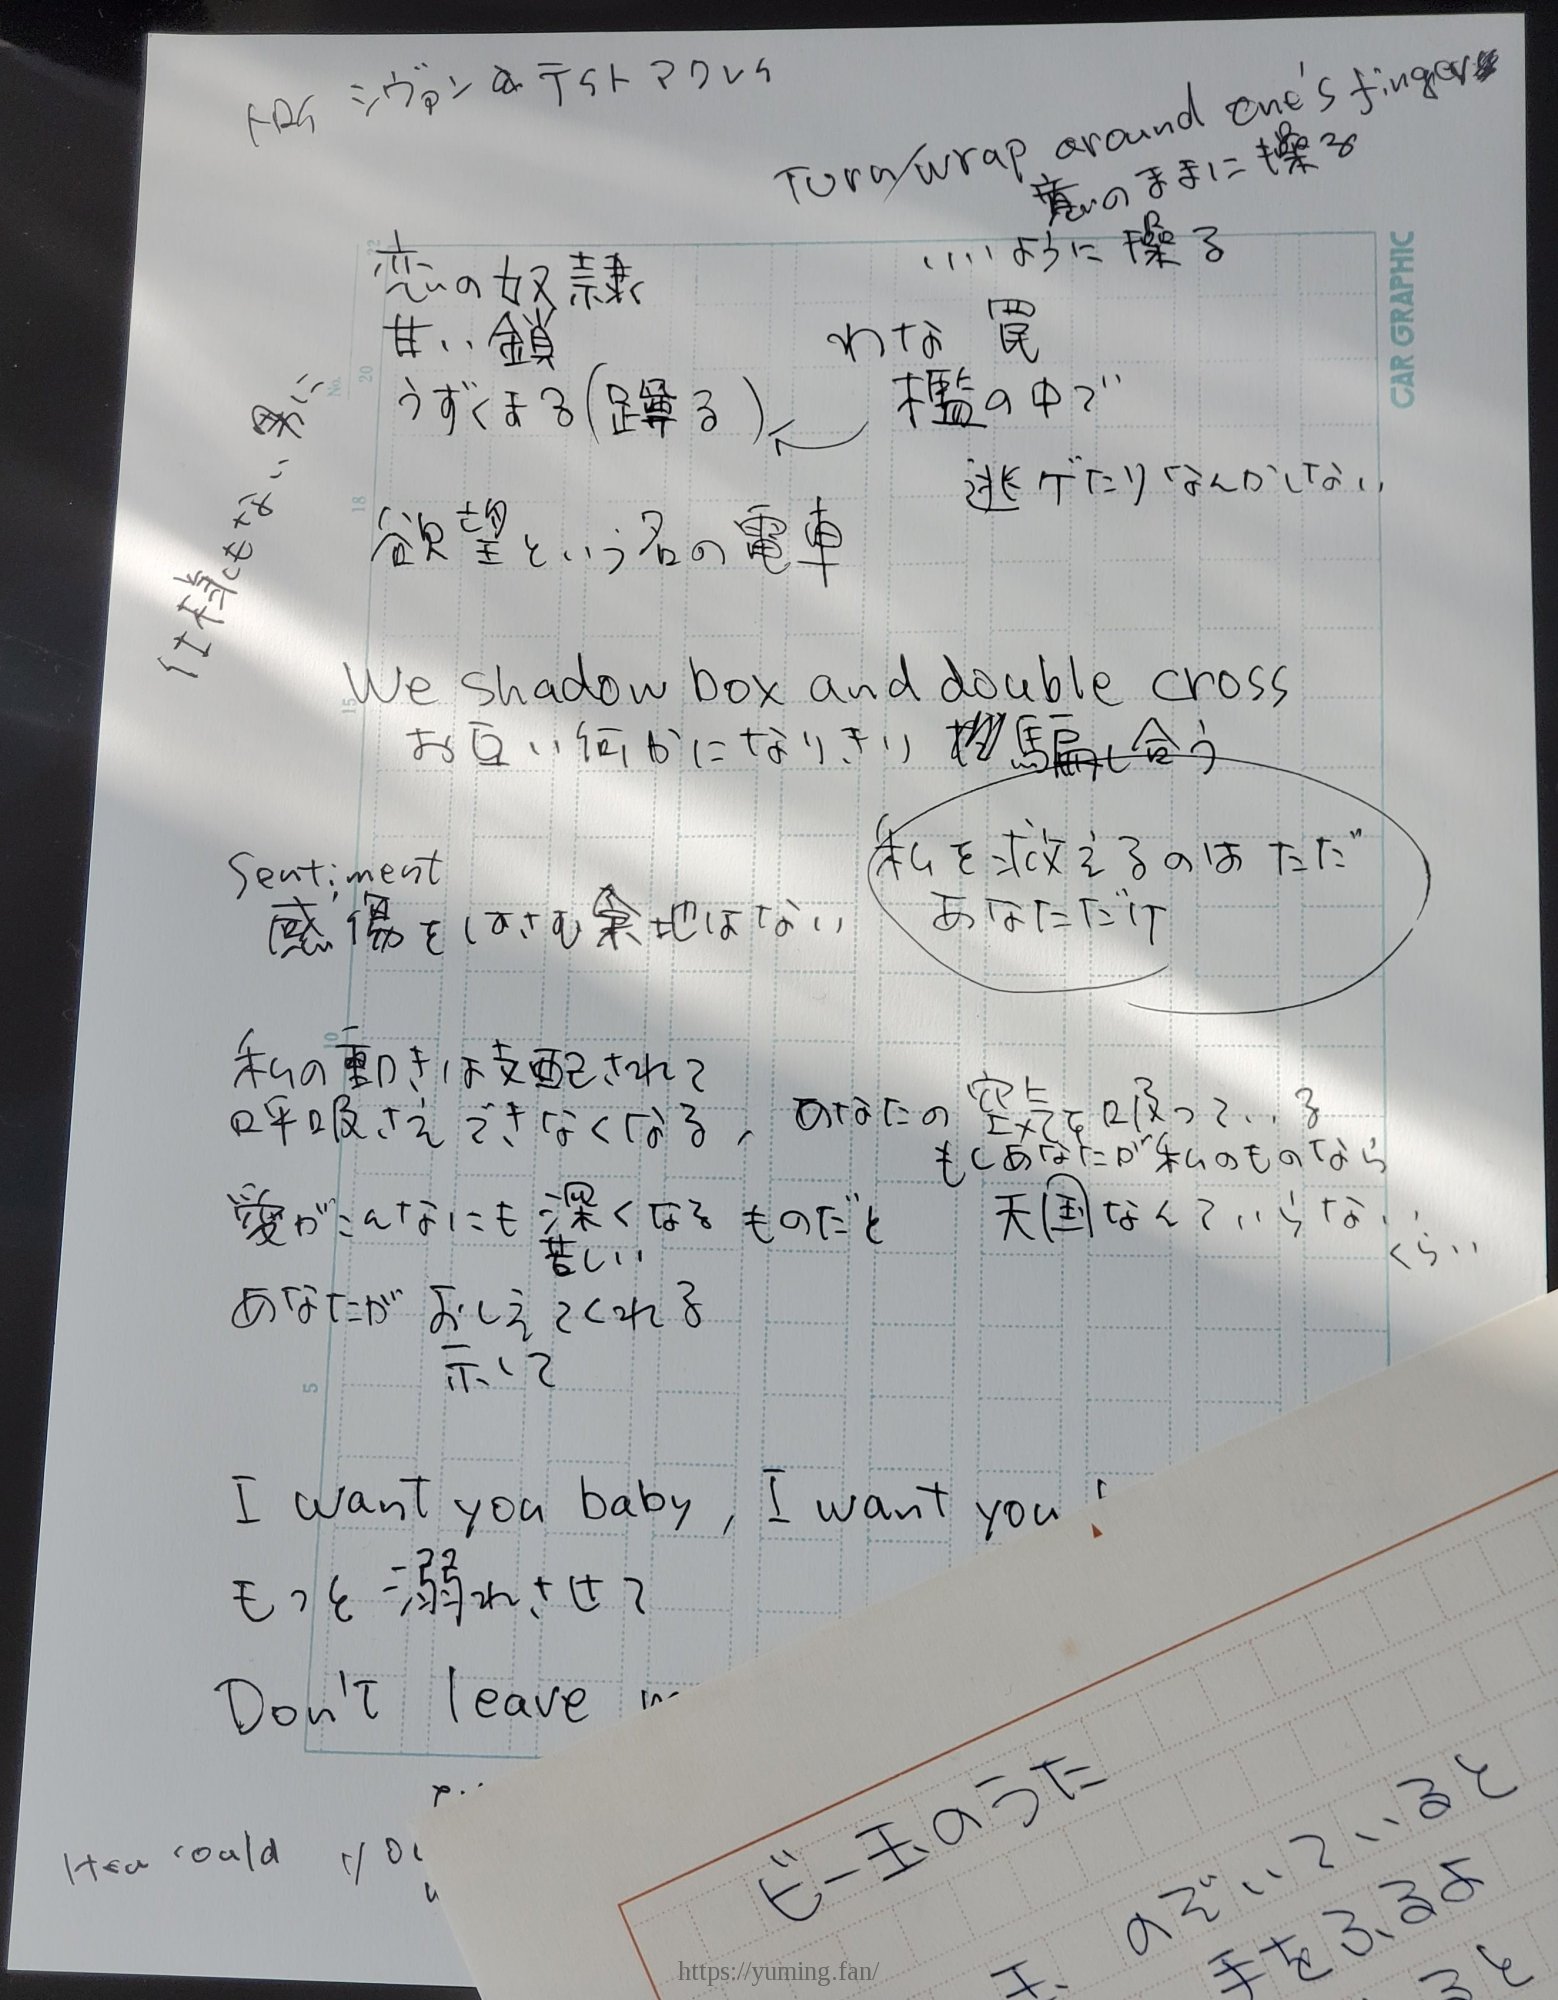 シヴァン & テイト マクレイ
Turn/wrap around one's finger
意のままに操る
いいように操る
恋の奴隷
甘い鎖
わな 罠
うずくまる(蹲る)
檻の中で
逃ゲたりなんかしない
欲望という名の電車
CAR GRAPHIC
No.
22
20
18
15
10
5
We shadow box and double cross
お互い何かになりきり 騙し合う
私を救えるのは ただ
あなただけ
Sentiment
感傷をはさむ余地はない
私の動きは支配されて
呼吸さえできなくなる, あなたの空気を吸っている
もしあなたが私のものなら
愛がこんなにも深くなるものだと
苦しい
天国なんていらない
くらい
あなたが おしえてくれる
示して
I want you baby, I want you
もっと溺れさせて
Don't leave
could
ビー玉のうた
のぞいていると
手をふるよ
ると
https://yuming.fan/